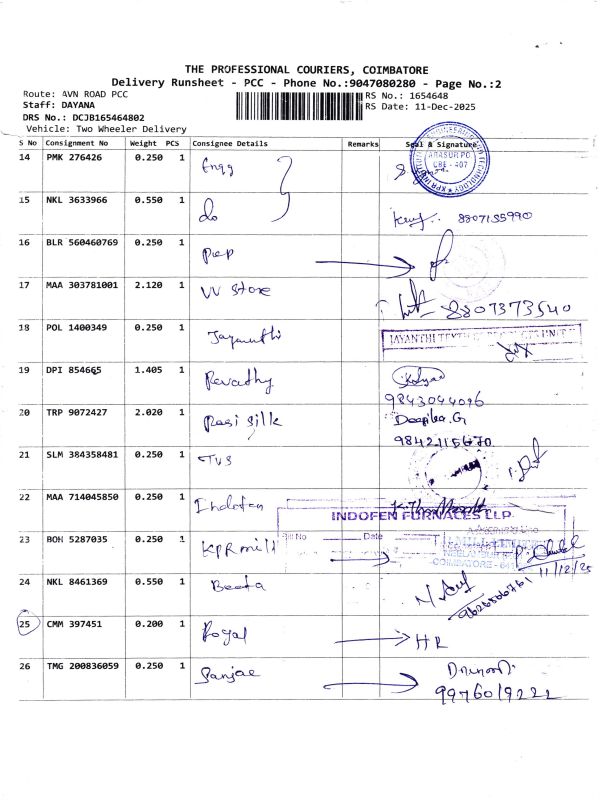 THE PROFESSIONAL COURIERS, COIMBATORE
Delivery Runsheet - PCC - Phone No.:9047080280 - Page No.:2
Route: AVN ROAD PCC
RS No.: 1654648
Staff: DAYANA
RS Date: 11-Dec-2025
DRS No.: DCJB165464802
Vehicle: Two Wheeler Delivery
S No Consignment No Weight PCS Consignee Details Remarks Seal & Signature
14 PMK 276426 0.250 1 Engg
ARASUR PO
CBE - 407
15 NKL 3633966 0.550 1 do 8807155990
16 BLR 560460769 0.250 1 prep
17 MAA 303781001 2.120 1 VV Store 8807373540
18 POL 1400349 0.250 1 Jayanthi
19 DPI 854665 1.405 1 Revathy
9843044096
20 TRP 9072427 2.020 1 Rasi Silk Deepika.G
9842115670
21 SLM 384358481 0.250 1 TVS
22 MAA 714045850 0.250 1 Indofen
INDOFEN FURNACES LLP.
23 BOM 5287035 0.250 1 KPR mill
Bill No Date
COIMBATORE
11/12/25
24 NKL 8461369 0.550 1 Beeta
9626566761
25 CMM 397451 0.200 1 Royal HR
26 TMG 200836059 0.250 1 Sanjae
9976019222